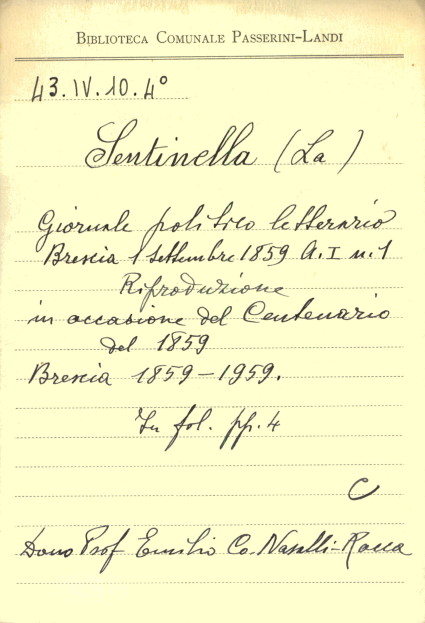 BIBLIOTECA COMUNALE PASSERINI-LANDI
43.IV.10.4°
Sentinella (La)
Giornale politico letterario
Brescia 1 settembre 1859 A.I n.1
Riproduzione
in occasione del Centenario
del 1859
Brescia 1859-1959.
In fol. pp. 4
C
Dono Prof Emilio Co. Nasalli-Rocca